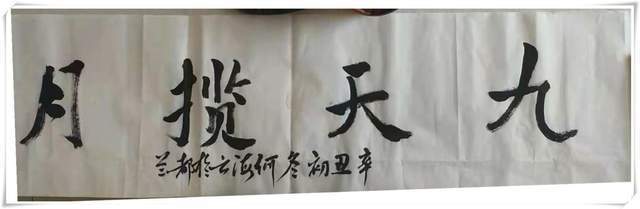 九天揽月
辛丑初冬何海云于兰都